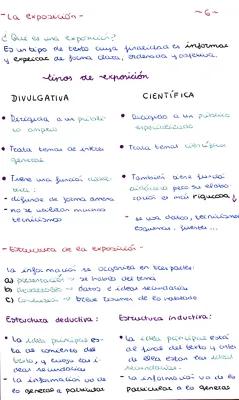 - La exposición -
~ 6 ~
¿Qué es una exposición?
Es un tipo de texto cuya finalidad es informar
y explicar de forma clara, ordenada y objetiva.
tipos de exposición
DIVULGATIVA
• Dirigida a un público
amplio
• Trata temas de interés
general
• Tiene una función
:
- difunde de forma amena
- no se utilizan muchos
tecnicismos
CIENTÍFICA
• Dirigido a un público
especializado
• Trata temas científicos
• También tiene función
didáctica pero su elabo-
ración es más rigurosa
- se usa datos, tecnicismos
esquemas, fuentes ...
- Estructura de la exposición -
La información se organiza en tres partes:
a) presentación → se habla del tema
b) Desarrollo → datos e ideas secundarias
c) Conclusión → breve resumen de lo hablado
Estructura deductiva:
• la idea principal es-
tá al comienzo del
texto, y luego las i-
deas secundarias
- La información va de
lo general a particular
Estructura inductiva:
• la idea principal está
al final del texto y antes
de ella están las ideas
secundarias.
- La información va de lo
particular a lo general